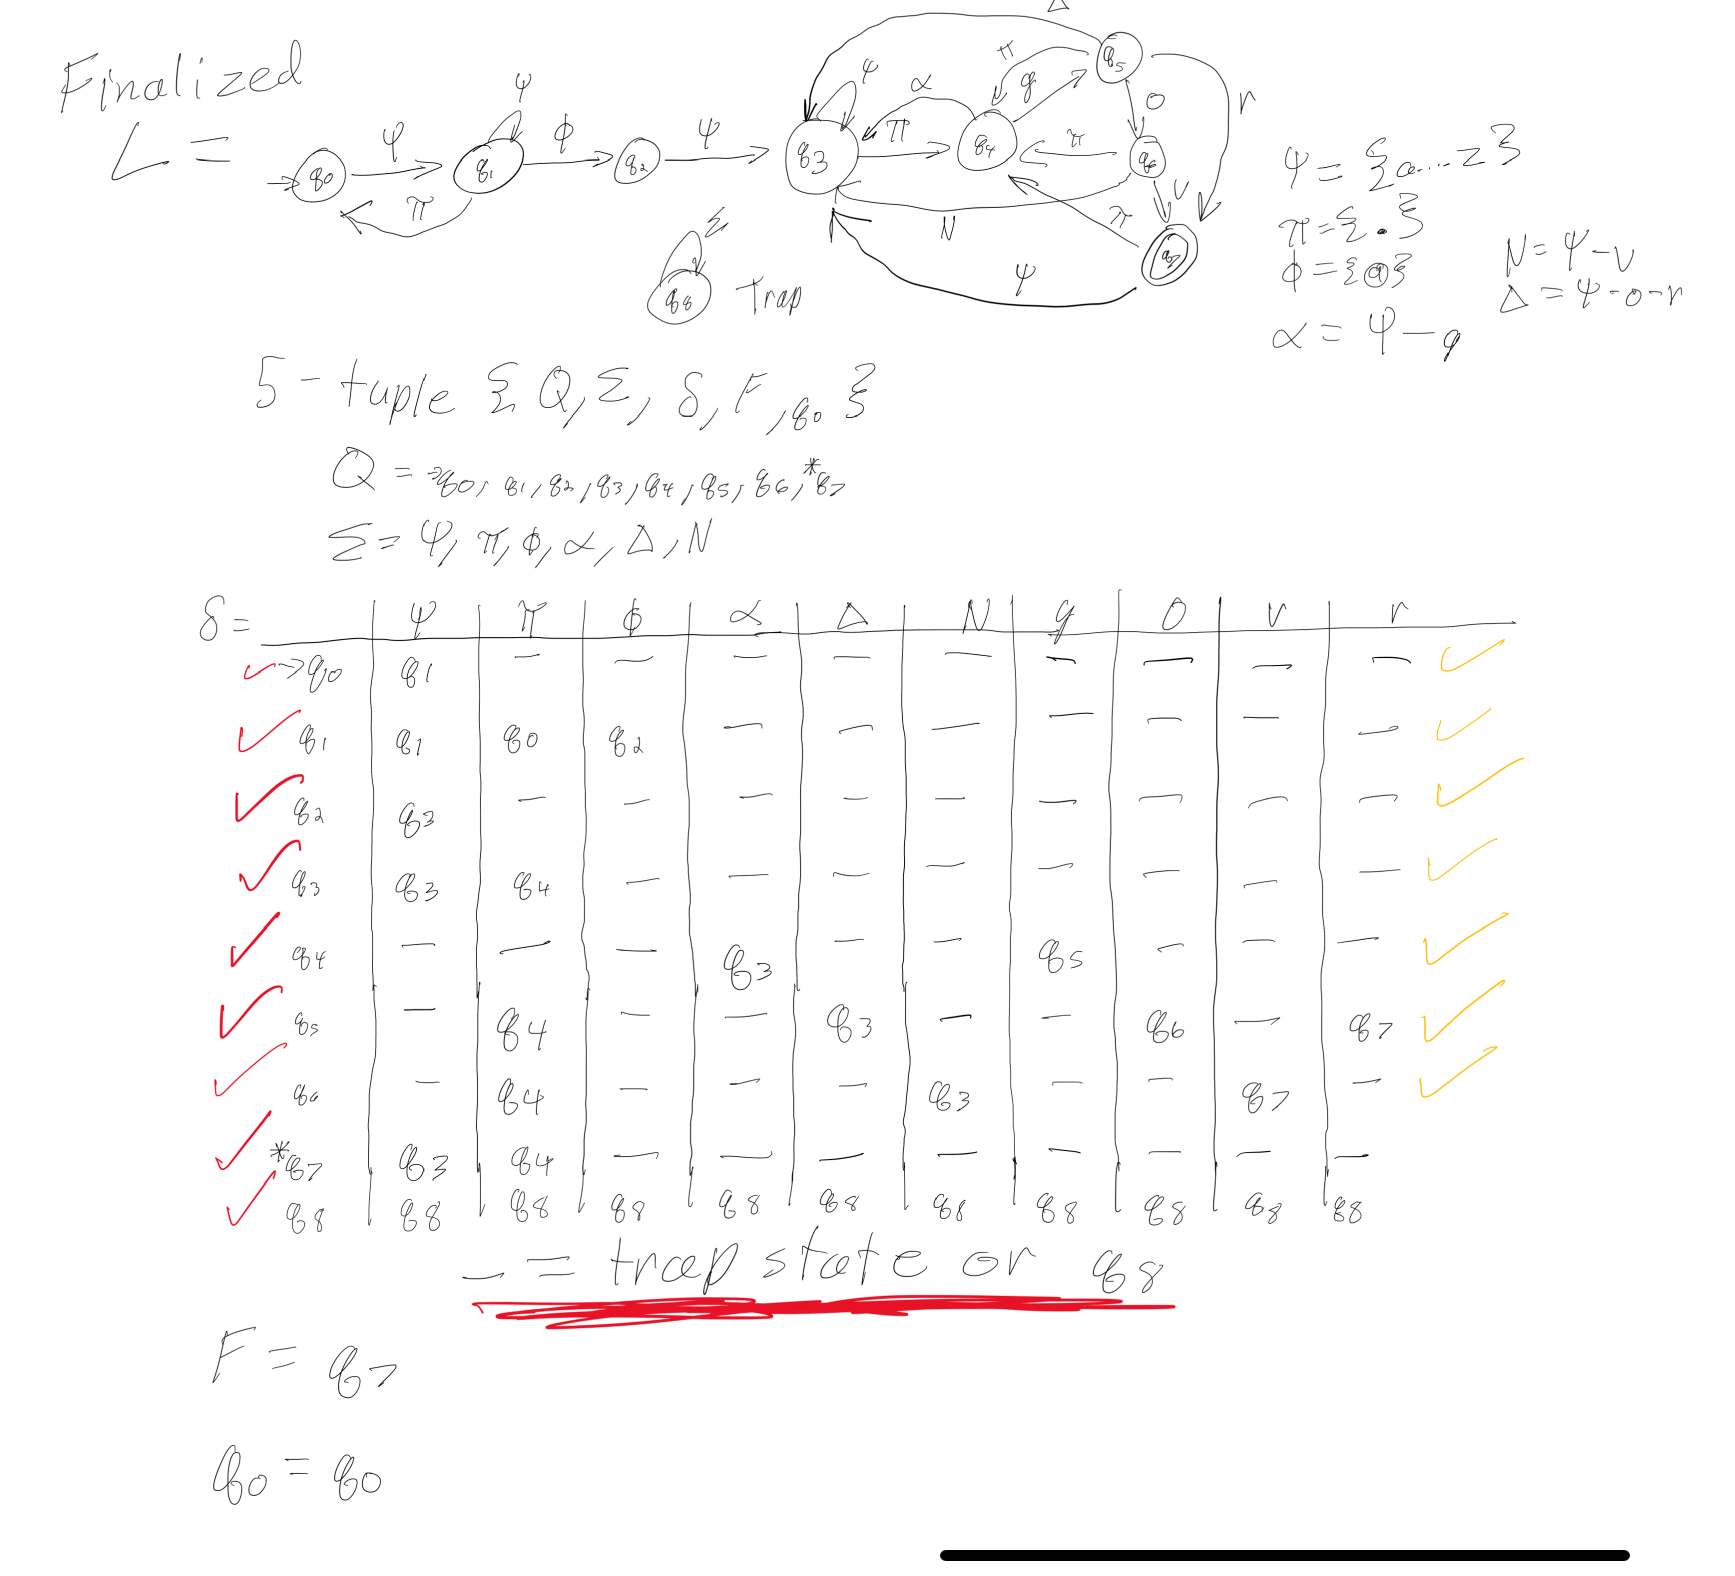 Finalized
L =
Δ
π
q5
ψ
α
g
o
r
ψ
ψ
ϕ
ψ
π
π
→q0
q1
q2
q3
q4
q6
π
v
N
π
q7
ψ
Σ
q8 Trap
ψ = {a...z}
π = {.}
ϕ = {@}
α = ψ - g
N = ψ - v
Δ = ψ - o - r
5 - tuple {Q, Σ, δ, F, q0}
Q = →q0, q1, q2, q3, q4, q5, q6, *q7
Σ = ψ, π, ϕ, α, Δ, N
δ = ψ π ϕ α Δ N g o v r
→q0 q1 — — — — — — — — —
q1 q1 q0 q2 — — — — — — —
q2 q3 — — — — — — — — —
q3 q3 q4 — — — — — — — —
q4 — — — q3 — — q5 — — —
q5 — q4 — — q3 — — q6 — q7
q6 — q4 — — — q3 — — q7 —
*q7 q3 q4 — — — — — — — —
q8 q8 q8 q8 q8 q8 q8 q8 q8 q8 q8
— = trap state or q8
F = q7
q0 = q0